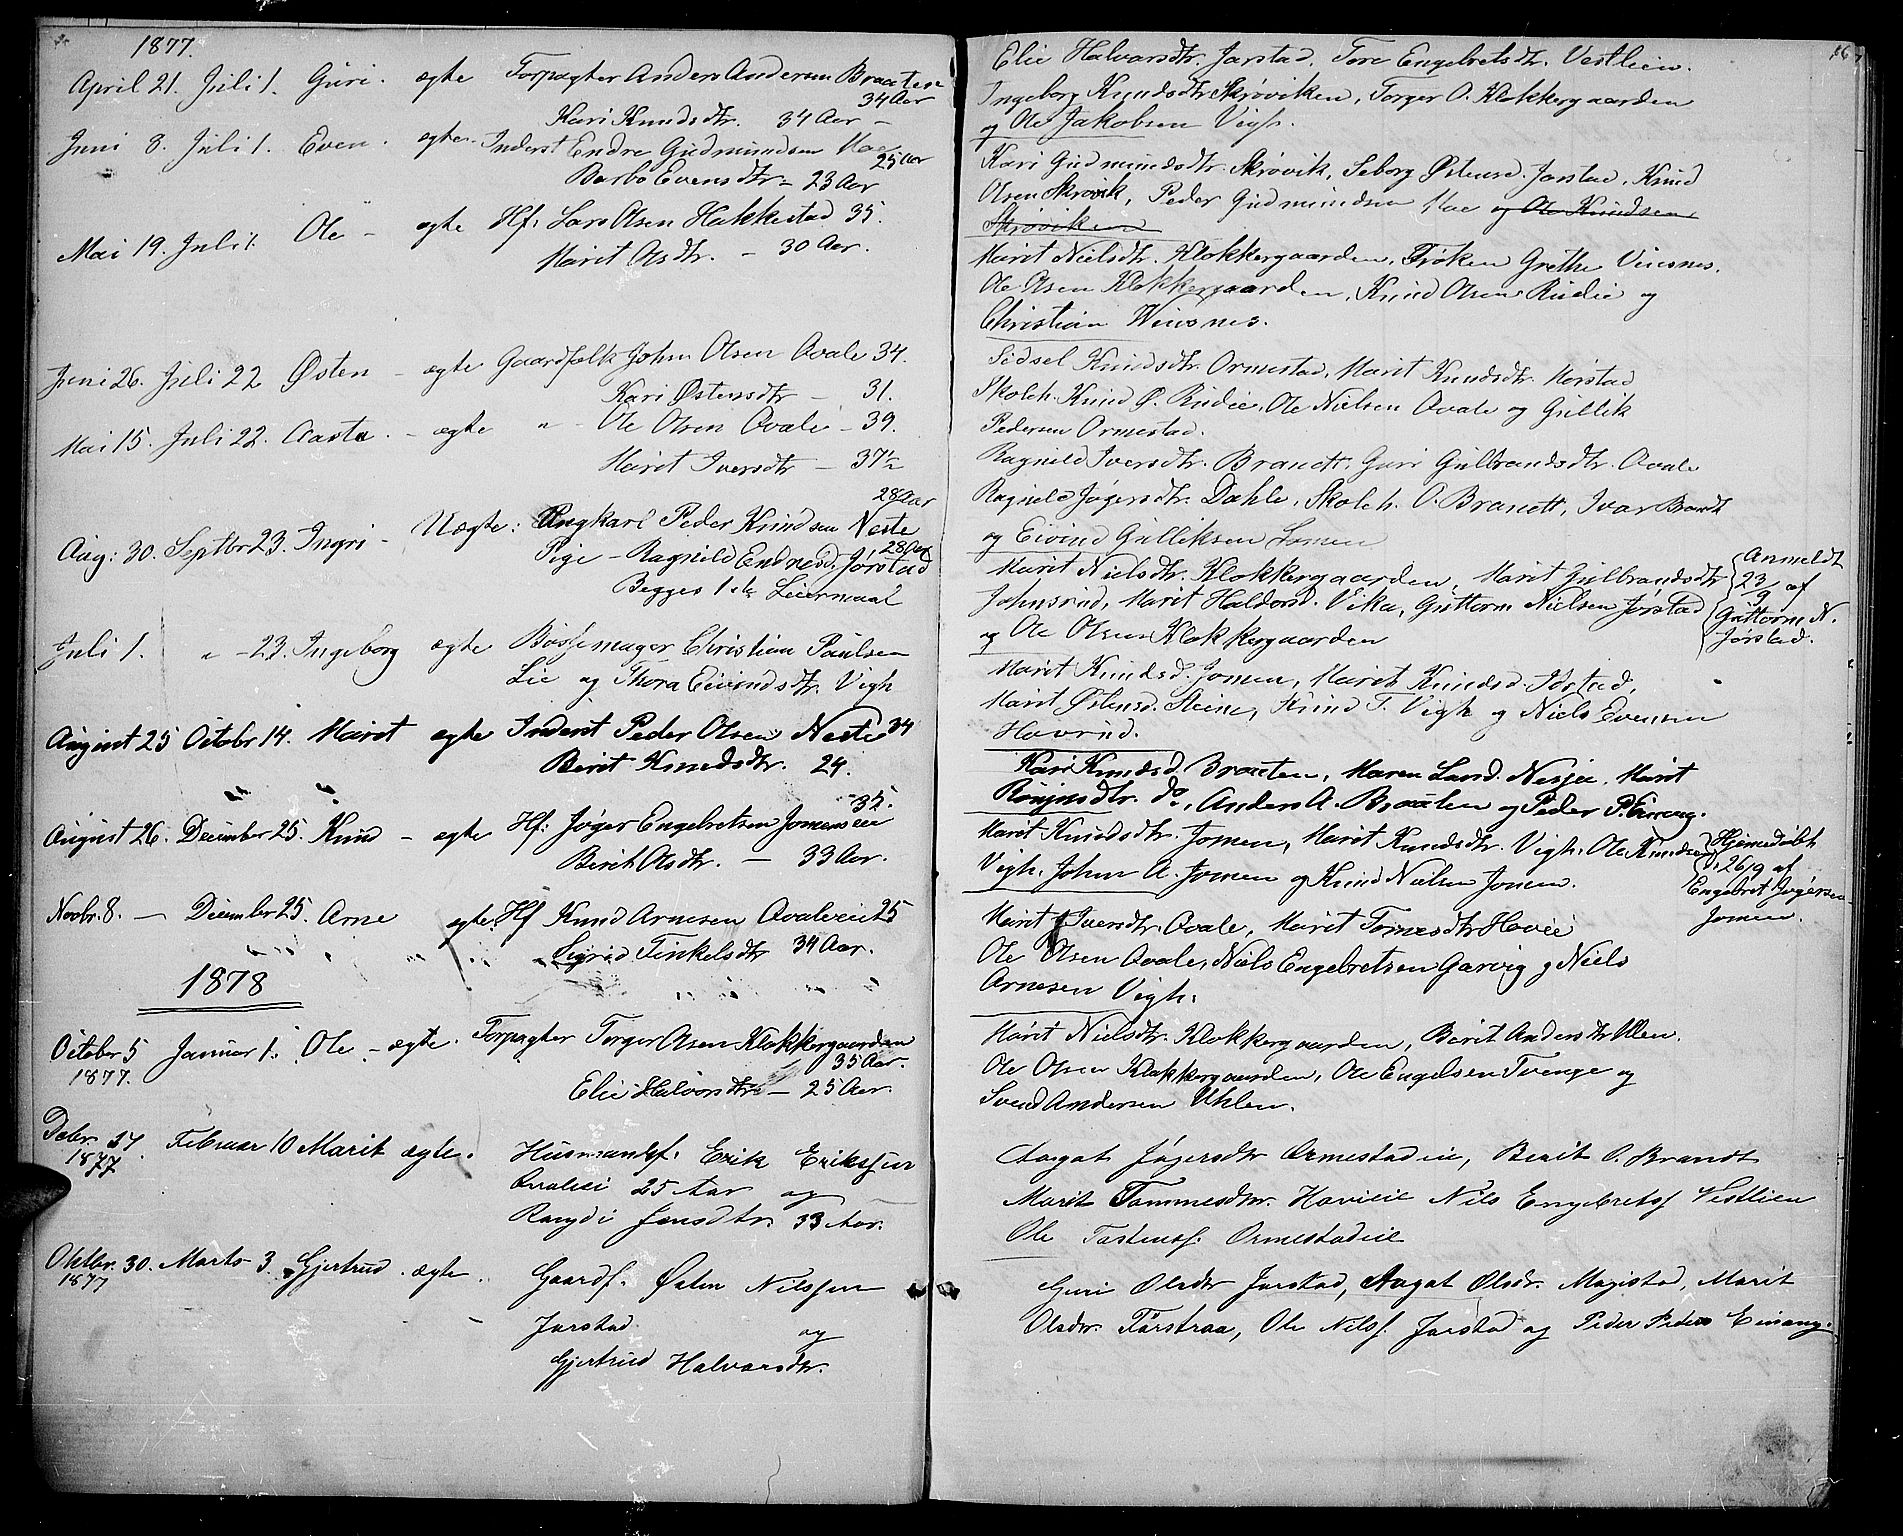 1877.
April 21. Juli 1. Guri. ægte Forpagter Anders Andersen Braaten
34 Aar
Kari Knudsdtr. 34 Aar –
Juni 8. Juli 1. Even. ægte. Inderst Endre Gudmundsen Moe
25 Aar
Barbo Evensdtr – 23 Aar
Mai 19. Juli 1. Ole – ægte Hf: Lars Olsen Hakkestad 35.
Marit Olsdtr. – 30 Aar.
Juni 26. Juli 22 Østen – ægte Gaardfolk John Olsen Qvale 34.
Kari Østensdtr – 31.
Mai 15. Juli 22. Aasta – ægte " – Ole Olsen Qvale – 39.
Marit Iversdtr – 37½
28 Aar
Aug: 30. Septbr 23. Ingri – Uægte: Ungkarl Peder Knudsen Neste
28 Aar
Pige – Ragnild Endresd. Jørstad
Begges 1ste Leiermaal
Juli 1. " – 23. Ingeborg ægte Bøssemager Christian Paulsen
Lie og Thora Eivindsdtr. Vigh
August 25 Octobr 14. Marit ægte Inderst Peder Olsen Neste 34
Berit Knudsdtr. 24.
35.
August 26. December 25. Knud – ægte Hf: Jøger Engebretsen Jomenseie
Berit Olsdtr. – 33 Aar.
Novbr. 8. – December 25. Arne ægte. Hf Knud Arnesen Qvaleeie 25
Sigrid Tinkelsdtr 34 Aar.
1878
October 5 Januar 1. Ole – ægte. Forpagter Torger Olsen Klokkergaarden
1877. 35 Aar.
Elie Halvorsdtr – 25 Aar.
Debr. 17. Februar 10 Marit ægte. Husmandsf. Erik Eriksen
1877
Qvaleei 25 Aar og
Rangdi Jensdtr. 33 Aar.
Oktbr. 30. Marts 3. Gjertrud. ægte. Gaardf. Østen Nilssen
1877
Jarstad og
Gjertrud Halvorsdtr.
Elie Halvorsdtr. Jarstad, Tore Engebretsdtr. Vestlien.
Ingeborg Knudsdtr Skrøviken, Torger O. Klokkergaarden
og Ole Jakobsen Vigh.
Kari Gudmundsdtr. Skrøvik, Seborg Østensd. Jarstad, Knud
Olsen Skrøvik, Peder Gudmundsen Moe og Ole Knudsen
Skrøviken
Marit Nielsdtr. Klokkergaarden, Frøken Grethe Weisnes.
Ole Olsen Klokkergaarden, Knud Olsen Rudie og
Christian Weisnes.
Sidsel Knudsdtr. Ormestad, Marit Knudsdtr. Mørstad
Skoleh. Knud Ø. Rudie, Ole Nielsen Qvale og Gullik
Pedersen Ormestad.
Ragnild Iversdtr. Brandt, Guri Gulbrandsdtr. Qvale
Ragnild Jøgersdtr. Dahle, Skoleh. O. Brandt, Ivar Brandt
og Eivind Gulliksen Lomen
Marit Nielsdtr. Klokkergaarden, Marit Gulbrandsdtr
Johnsrud, Marit Haldorsd. Vika, Guttorm Nielsen Jørstad
og Ole Olsen Klokkergaarden
Anmeldt
23/9 af
Guttorm N.
Jørstad.
Marit Knudsd. Jomen, Marit Knudsd. Idstad,
Marit Østensd. Steine, Knud T. Vigh og Niels Evensen
Hovrud.
Kari Knudsd. Braaten, Maren Land. Nesja, Marit
Do, Anders A. Braaten og Peder P. Einang.
Marit Knudsdtr. Jomen, Marit Knudsdtr. Vigh. Ole Knudsen
Vigh. John A. Jomen og Knud Nielsen Jomen.
Hjemedøbt
26/9 af
Engebret Jøgersen
Jomen.
Marit Iversdtr. Qvale, Marit Tomesdtr Hovie
Ole Olsen Qvale, Niels Engebretsen Garvig og Niels
Arnesen Vigh.
Marit Nielsdtr. Klokkergaarden, Berit Andersdtr Uhlen.
Ole Olsen Klokkergaarden, Ole Engelsen Tvenge og
Svend Andersen Uhlen.
Aagot Jøgersdtr Ormestadeie, Berit O. Brandt
Marit Tommesdtr. Hovieie Nils Engebretsf Vestlien
Ole Tostensf. Ormestadeie
Guri Olsdtr Jarstad, Aagot Olsdr. Magistad, Marit
Olsdtr. Førstraa, Ole Nilsf. Jarstad og Peder Peders Einang.